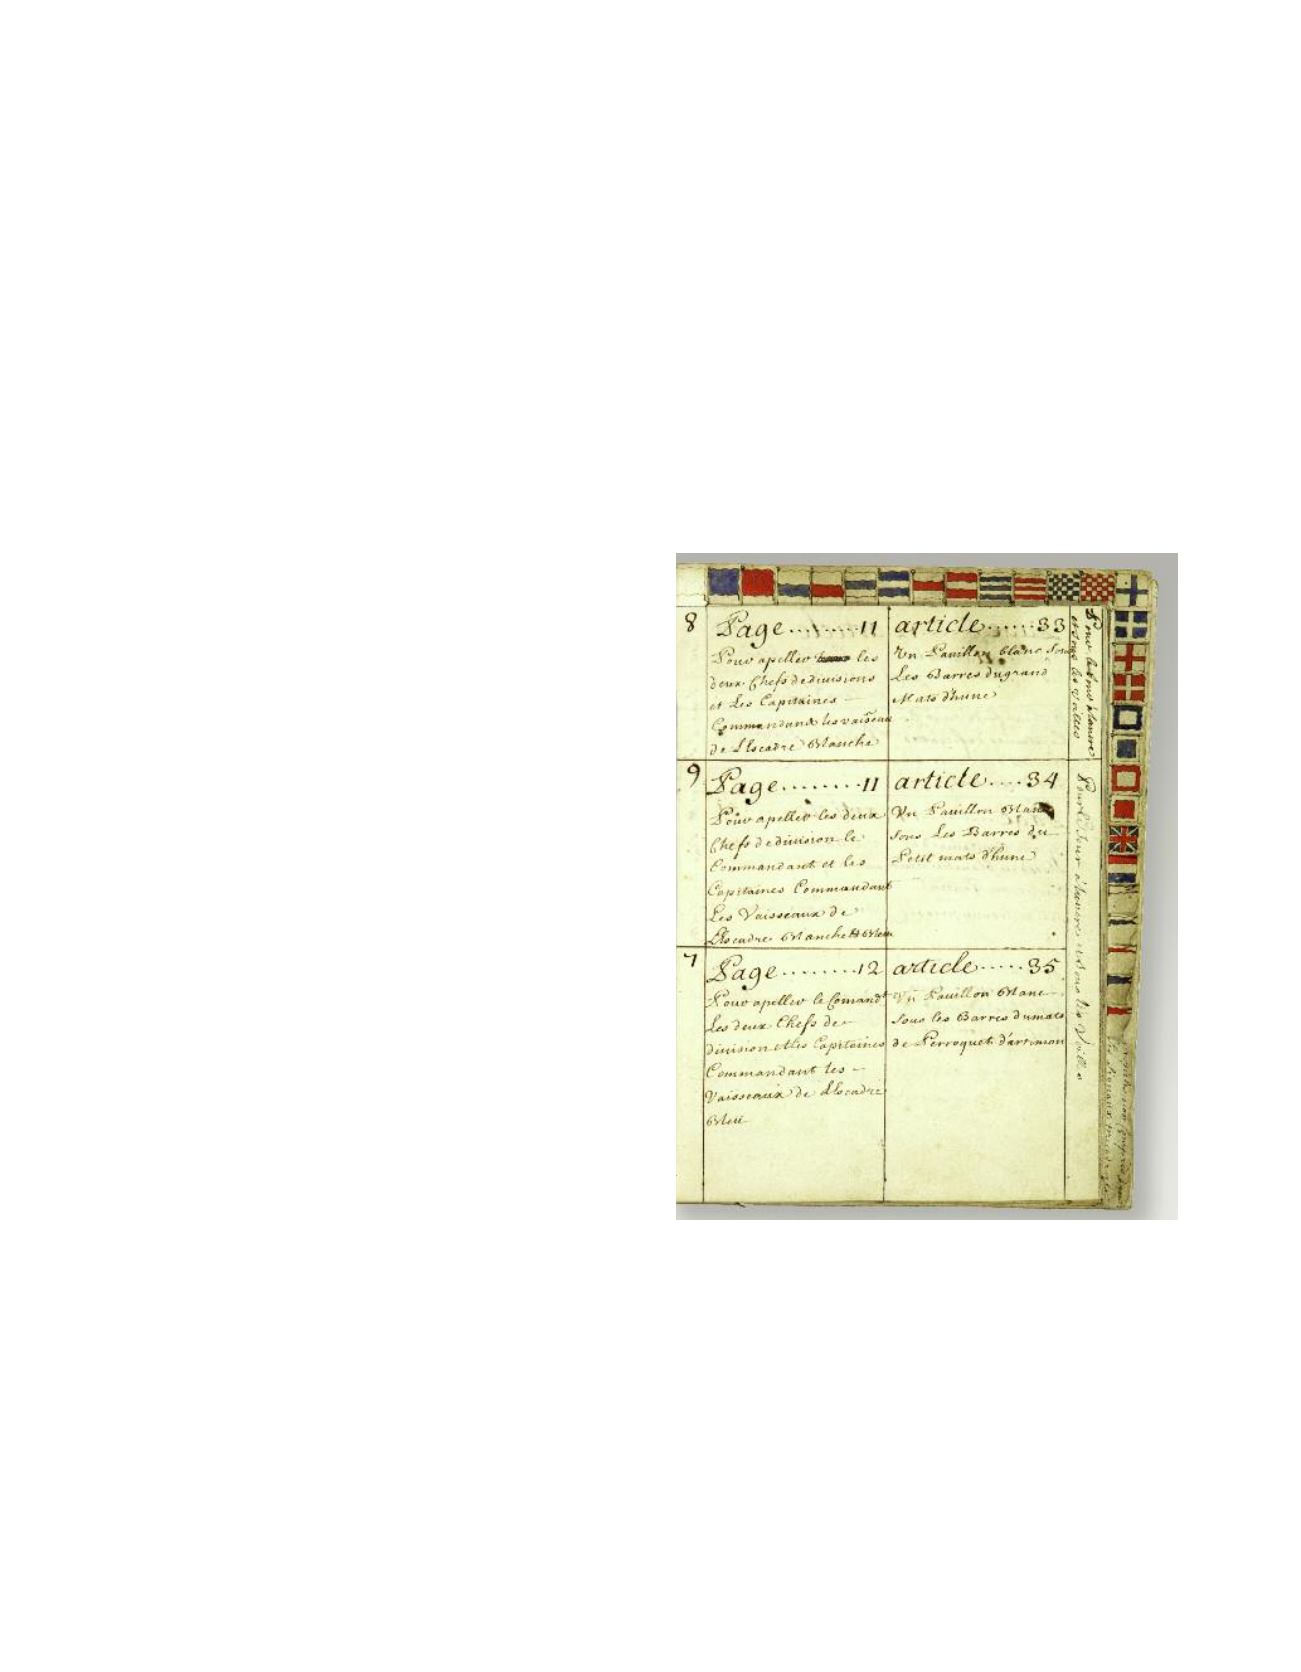 8
Page........11
Pour apeller les
deux Chefs dedivisions
et Les Capitaines
Commandant les vaisseau
de LEscadre Blanche
article.....33
Un Pavillon blanc sous
Les Barres dugrand
Mats d'hune
9
Page........11
Pour apeller les deux
Chefs dedivision le
Commandant et les
Capitaines Commandant
Les Vaisseaux de
LEscadre Blanche Bleu
article....34
Un Pavillon Blanc
sous Les Barres du
Petit mats d'hune
7
Page........12
Pour apeller le Comandt
Les deux Chefs de
division et les Capitaines
Commandant les
Vaisseaux de LEscadre
Bleu
article.....35
Un Pavillon Blanc
sous les Barres dumats
de Perroquet d'artimon
et sous les Voilles
Pour le Jour à l'ancre et sous les Voilles